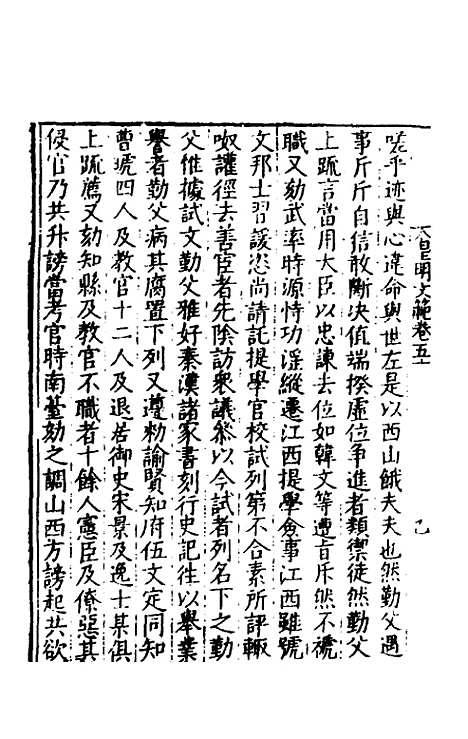 皇明文範卷五十
嗟乎迹與心違命與世左是以西山餓夫夫也然勤父遇
事斤斤自信敢斷决值端揆虛位争進者類禦徒然勤父
上疏言當用大臣以忠諫去位如韓文等遭㫖斥然不褫
職又劾武率時源恃功淫縱遷江西提學僉事江西雖號
文邦士習諼恣尚請託提學官校試列第不合素所評輙
呶讙徑去善宦者先陰訪衆議叅以今試者列名下之勤
父惟據試文勤父雅好秦漢諸家書刻行史記徃以舉業
譽者勤父病其腐置下列又遵勑諭賢知府伍文定同知
曹琥四人及教官十二人及退居御史宋景及逸士某俱
上疏薦又劾知縣及教官不職者十餘人憲臣及僚惡其
侵官乃共升謗當考官時南臺劾之調山西方謗起共欲